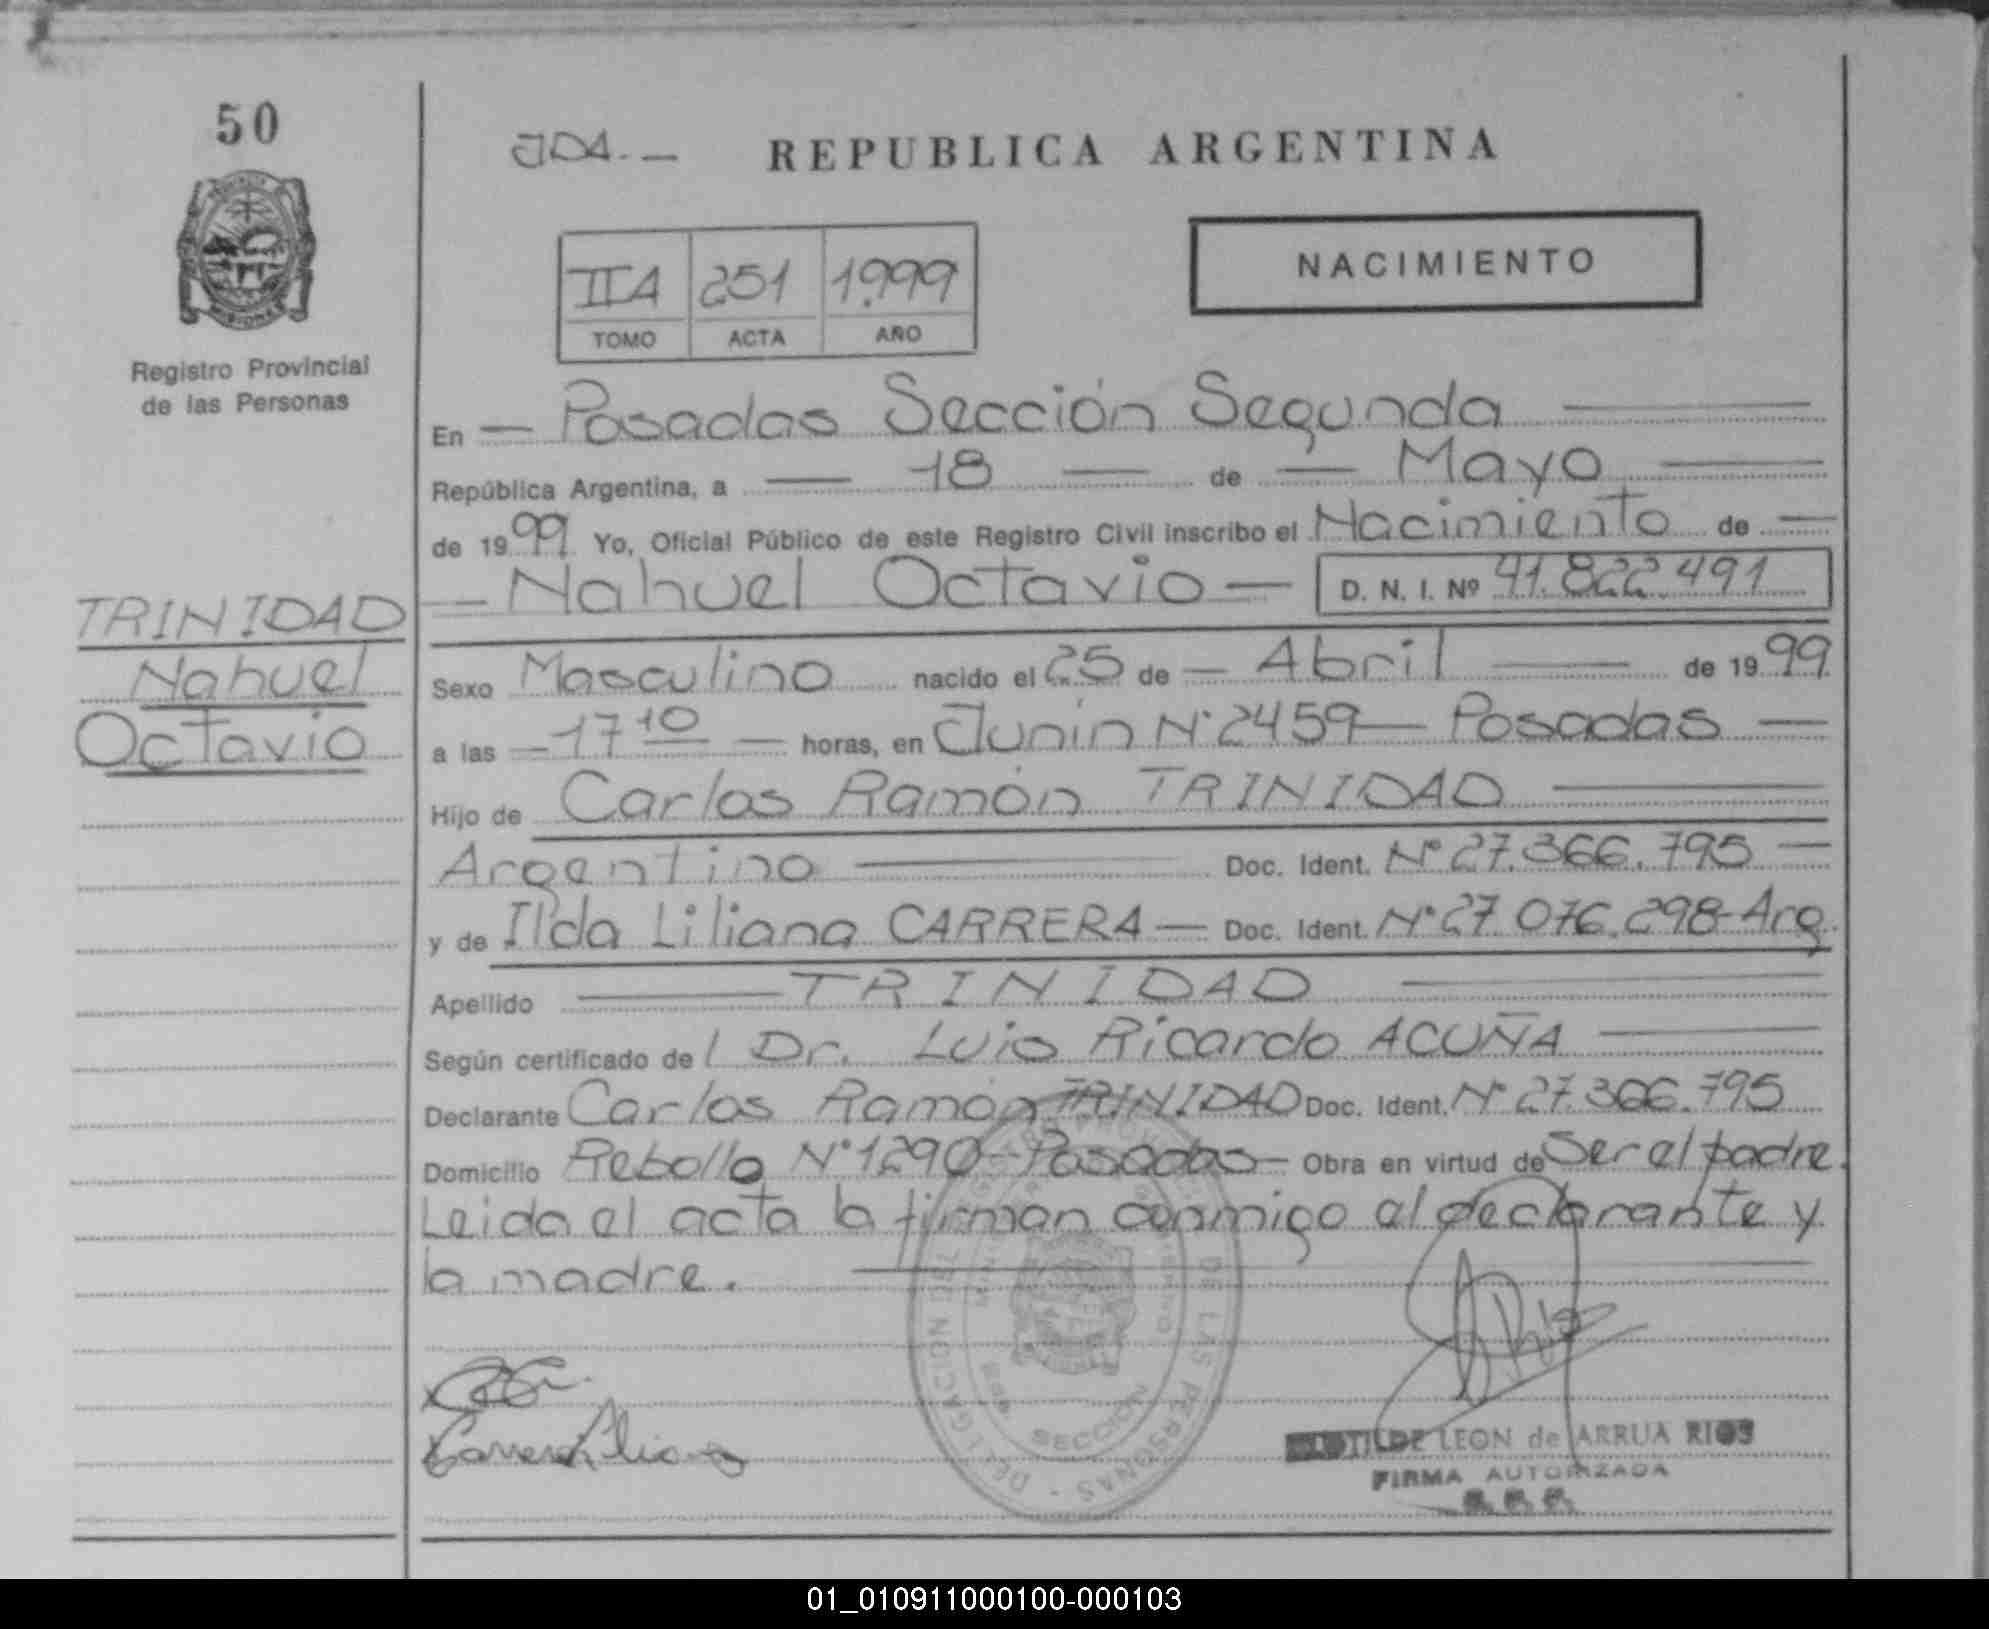 50
JDA.-
REPUBLICA ARGENTINA
Registro Provincial
de las Personas
IIA 251 1.999
TOMO ACTA AÑO
NACIMIENTO
En — Posadas Sección Segunda
República Argentina, a — 18 — de — Mayo
de 1999 Yo, Oficial Público de este Registro Civil inscribo el Nacimiento de —
— Nahuel Octavio — D. N. I. Nº 41.822.491
TRINIDAD
Nahuel
Octavio
Sexo Masculino nacido el 25 de — Abril — de 1999
a las — 17 10 — horas, en Junín Nº 2459 — Posadas —
Hijo de Carlos Ramón TRINIDAD
Argentino — Doc. Ident. Nº 27.366.795 —
y de Ilda Liliana CARRERA — Doc. Ident. Nº 27.076.298-Arg.
Apellido — TRINIDAD —
Según certificado del Dr. Luis Ricardo ACUÑA —
Declarante Carlos Ramón TRINIDAD Doc. Ident. Nº 27.366.795
Domicilio Rebollo Nº 1290 - Posadas — Obra en virtud de Ser el padre.
Leida el acta la firman conmigo el declarante y
la madre.
SECCION
DE LAS PERSONAS - DELEGACION
Carrera Liliana
CLOTILDE LEON de ARRUA RIOS
FIRMA AUTORIZADA
01_010911000100-000103